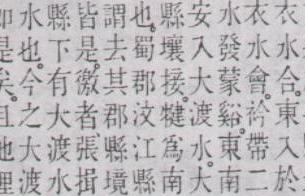 衣水合。東入於
衣水會。衿帶二
水發蒙谿。東南
安入大渡水。大
縣壤接。犍爲南
也。蜀郡汶江縣
謂去其郡縣境
皆是。徼者張揖
縣下有大渡水
水也。今之大渡
是矣。且地理